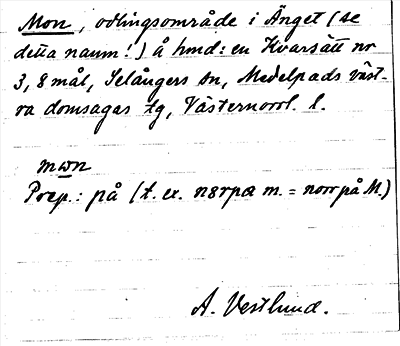 Mon, odlingsområde i Änget (se
detta namn!) å hmd: en Kvarsätt nr
3, 8 mål, Selångers sn, Medelpads väst-
ra domsagas tg, Västernorrl. l.
mωn
Prep.: på (t. ex. nɜrpα m. = norr på M.)
A. Vestlund.